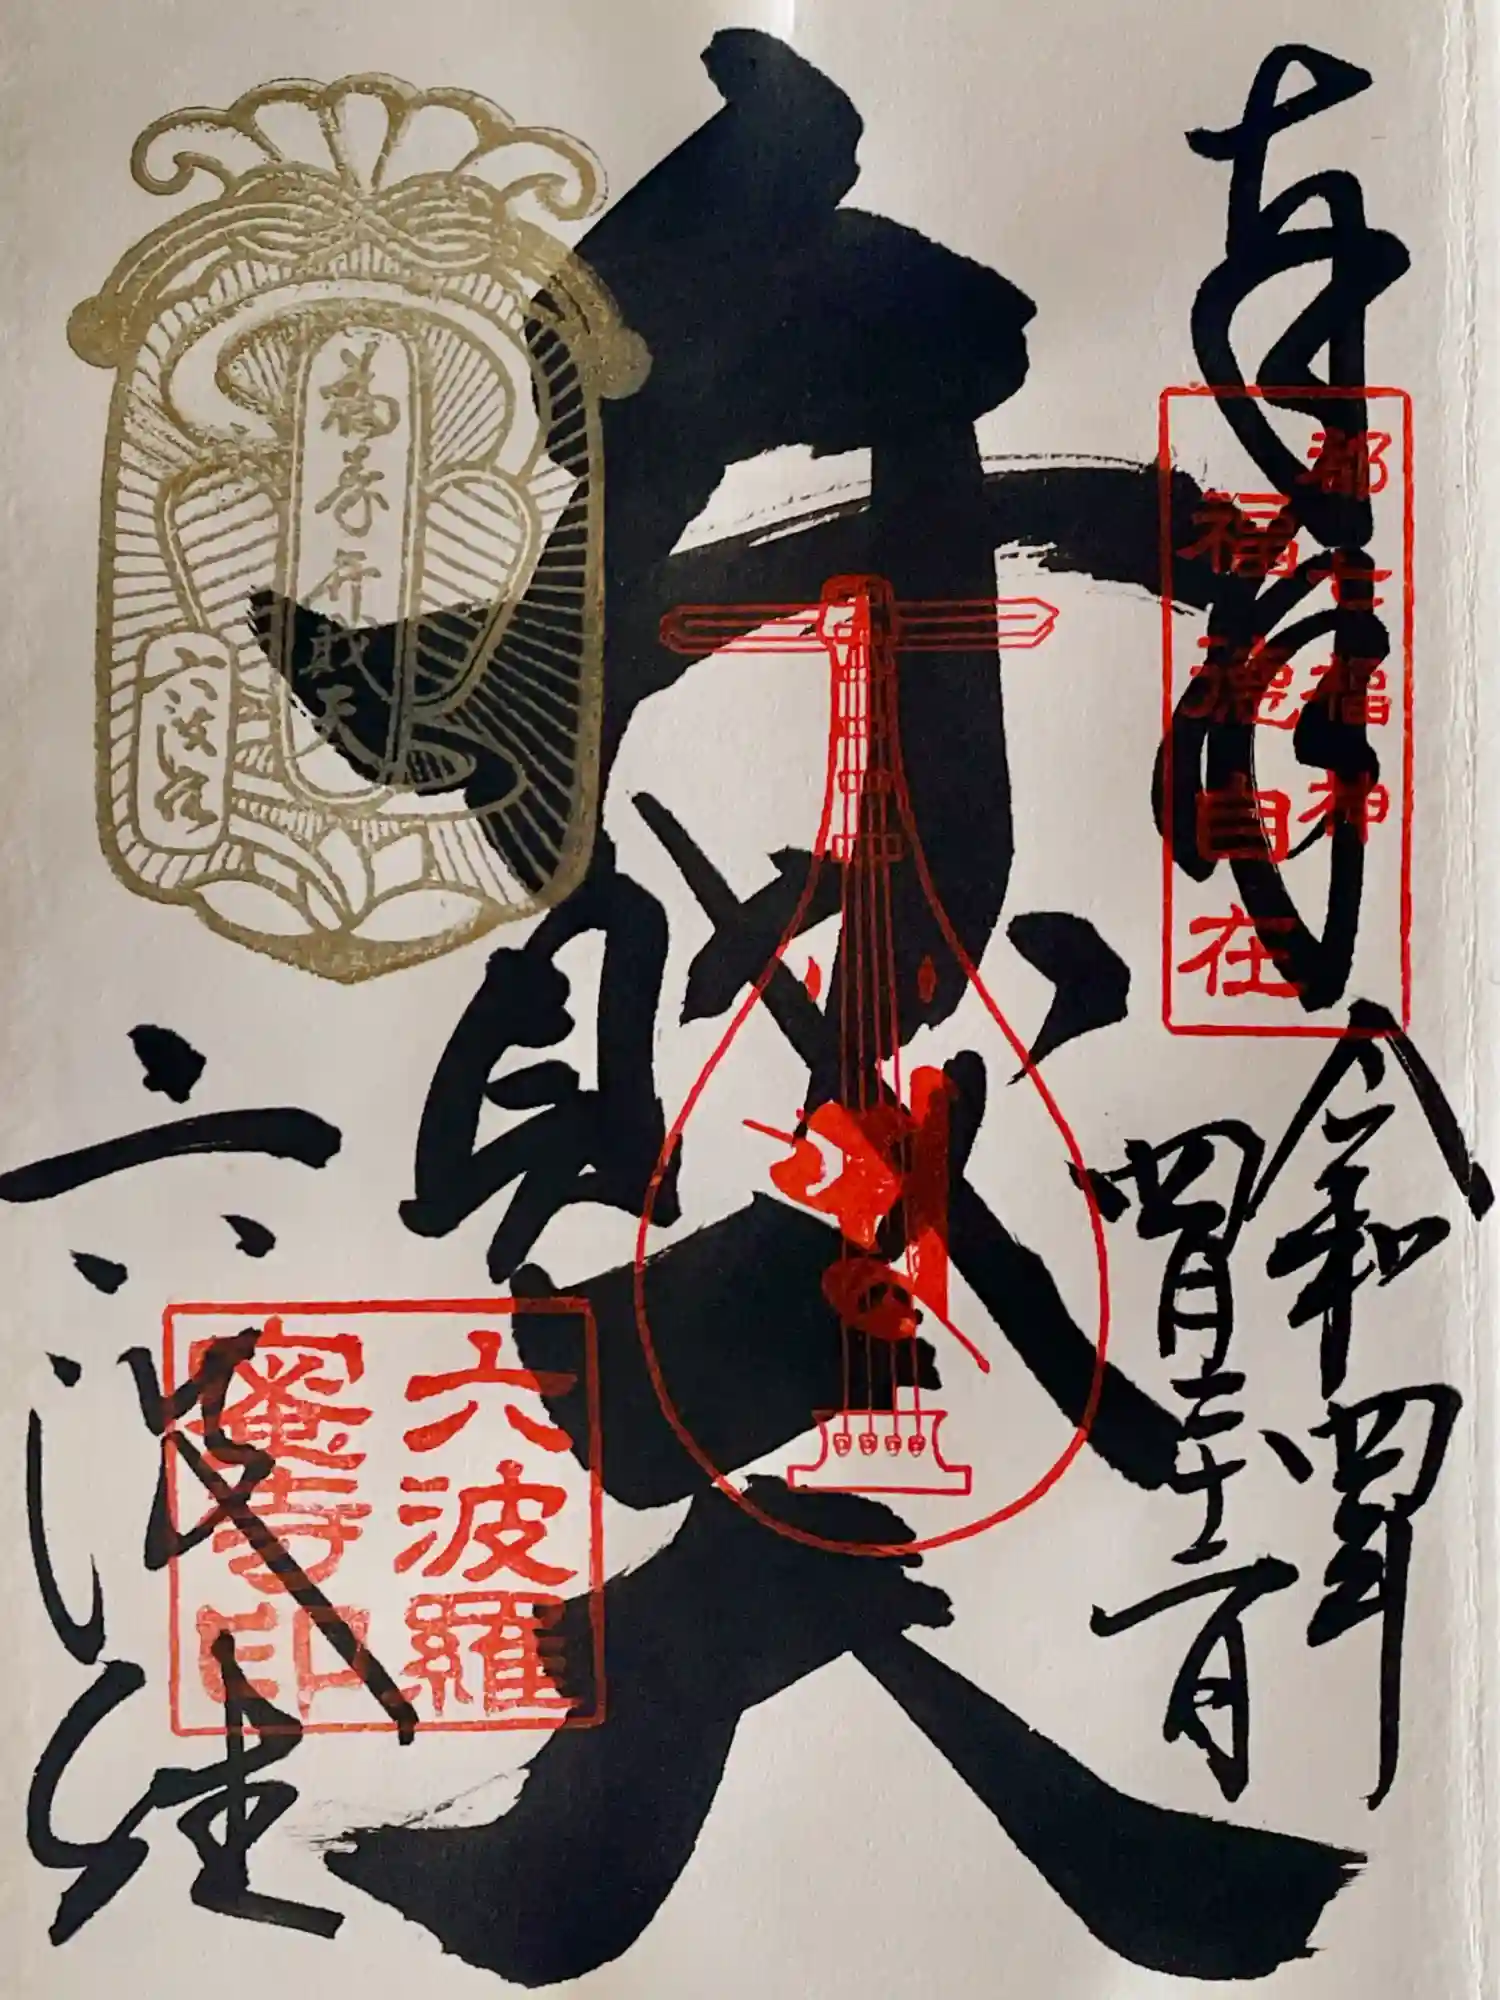 奉拝
都七福神
福徳自在
令和四年
四月二十二日
弁財天
福寿弁財天
六波羅
六波羅
六波羅
蜜寺印